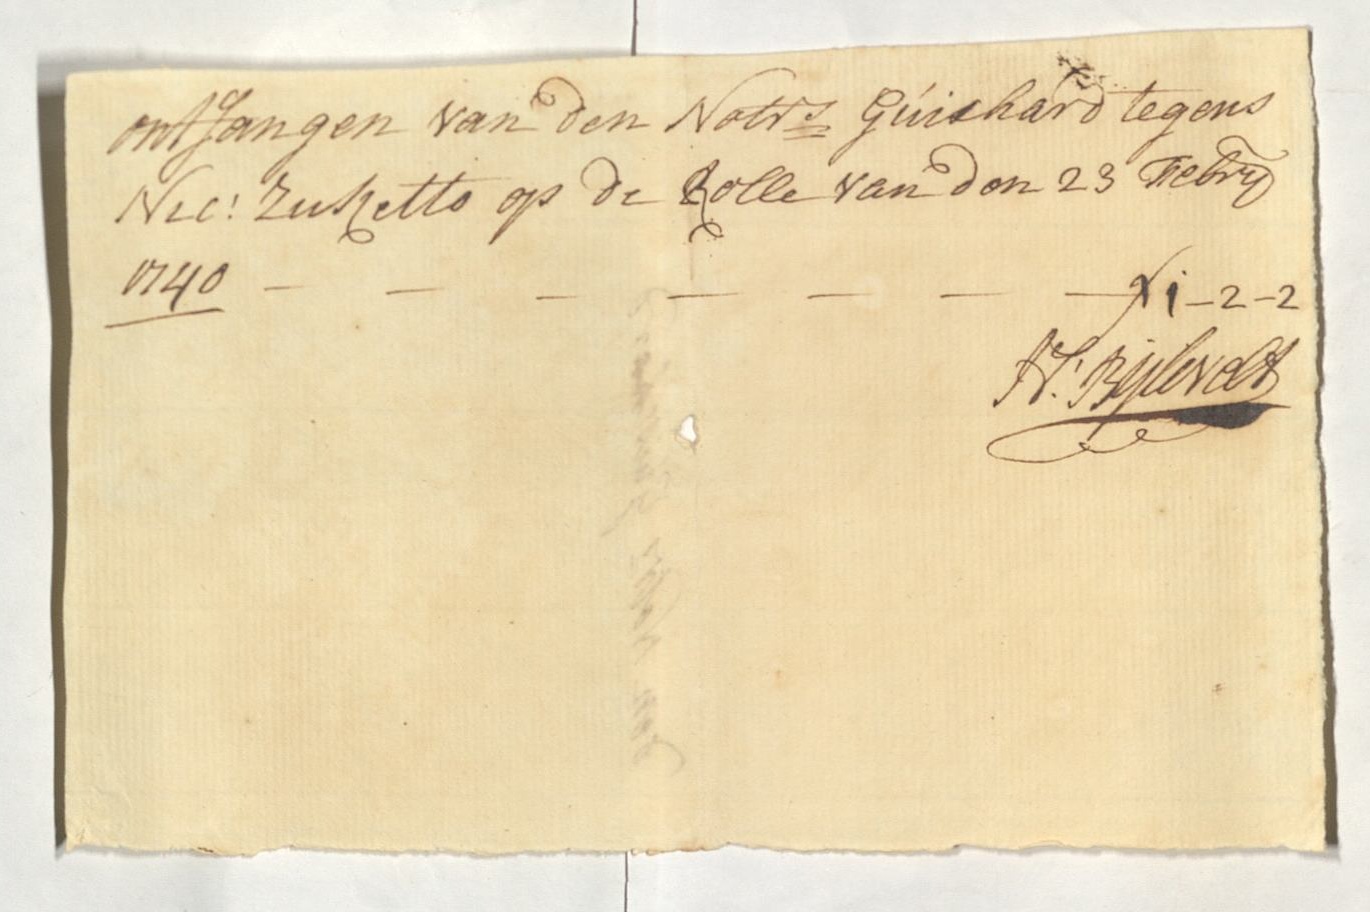 ontfangen van den Notrs Guichard tegens
Nic: Zuketto op de Rolle van den 23 Febry
1740 — — — — — — — ƒ 1-2-2
H: Bijlevelt